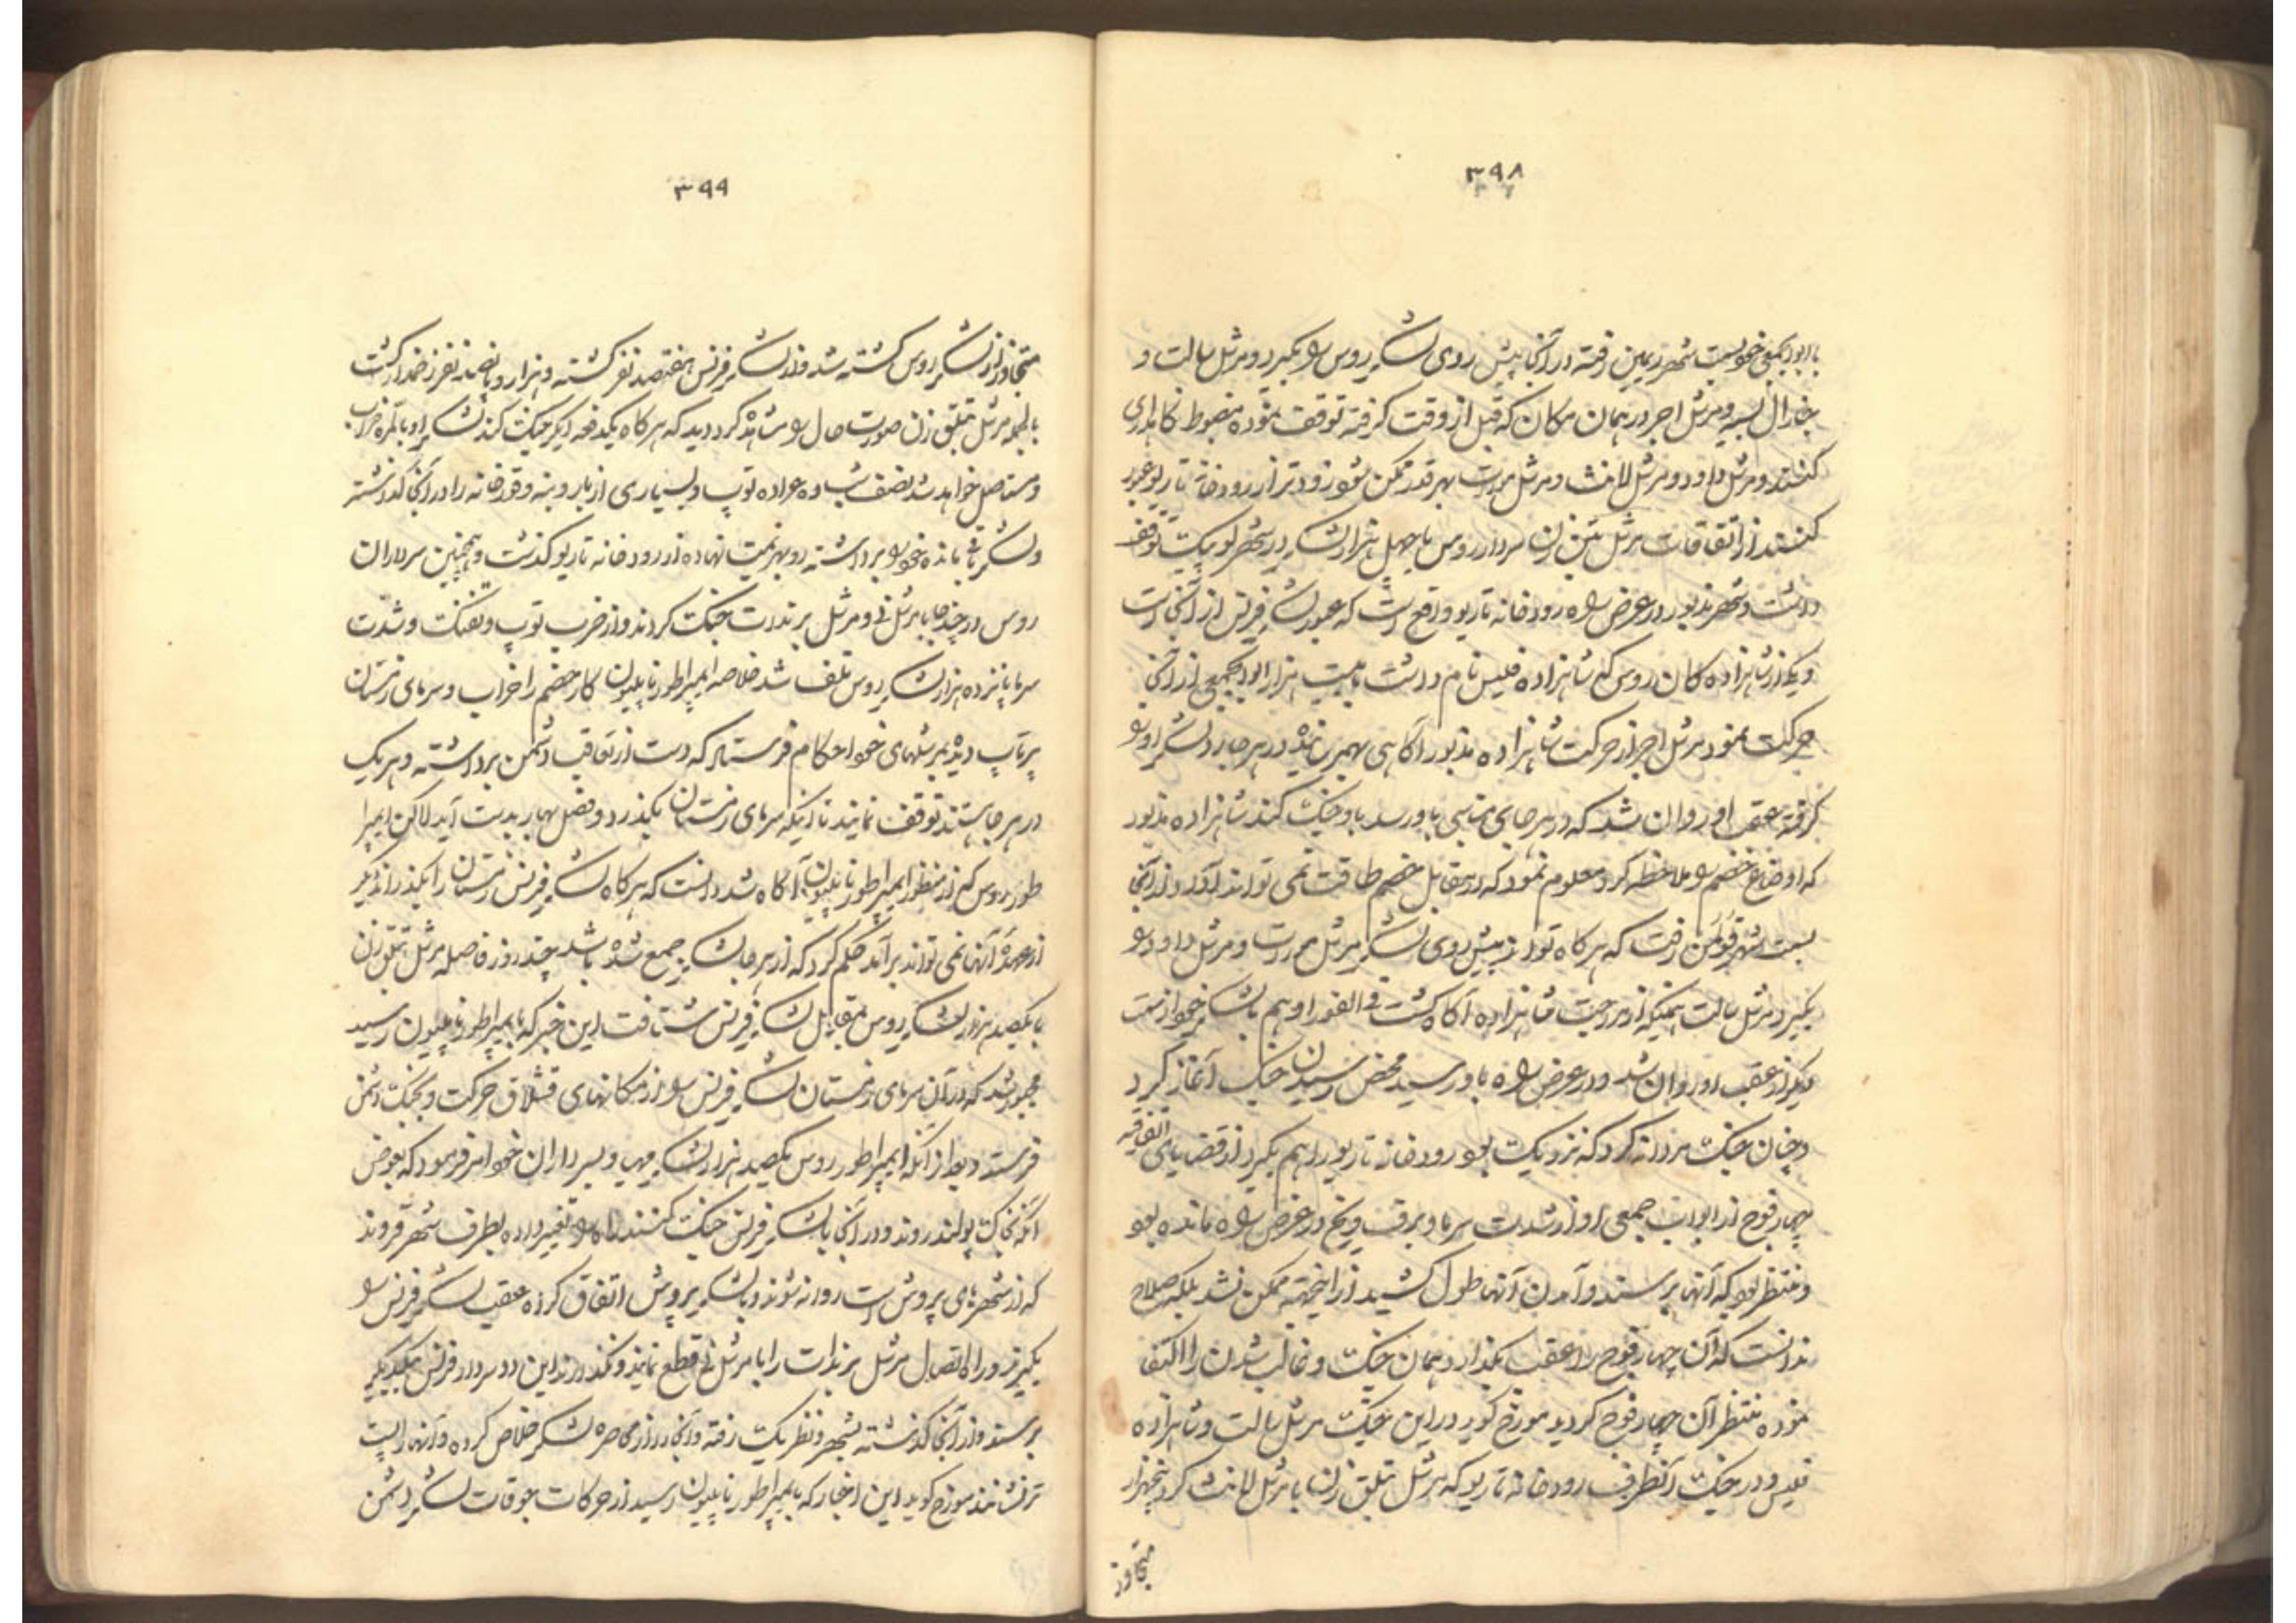 ۳۹۸
با ابوابجمعی خود بسمت شهر ریمین رفته در آنجا پیش روی لشکر روس را بگیرد و مرشل سالت و
جنرال بسیر و مرشل اجر در همان مکان که قبل از وقت گرفته توقف نموده مضبوط نگاهداری
کنند و مرشل داود و مرشل لانث و مرشل مورت بهر قدر ممکن شود زودتر از رودخانه ناریو عبور
کنند از اتفاقات مرشل بنق زن سردار روس با چهل هزار لشکر در شهر لوپیک توقف
داشت و شهر مذبور در عرض راه رودخانه ناریو واقع است که عبور لشکر فرنس از آنجا است
و یکی از شاهزاده کان روس که شاهزاده قلیس نام داشت با بیست هزار ابوابجمعی از آنجا
حرکت نمود مرشل اجر از حرکت شاهزاده مذبور آگاهی بهم رسانیده در هر جا رد لشکر او را
گرفته عقب او روان شد که در هر جای مناسبی باو رسد باو جنک کند شاهزاده مذبور
که اوضاع خصم را ملاحظه کرد معلوم نمود که در مقابل خصم طاقت نمی تواند آورد از آنجا
بسمت شهر قولمن رفت که هر کاه تواند پیش روی لشکر مرشل مورت و مرشل داود را
بگیرد مرشل سالت همینکه از مراجعت شاهزاده آکاه کشت فی الفور او هم با لشکر خود از سمت
دیگر از عقب او روان شد و در عرض راه باو رسید محض رسیدن جنک آغاز کرد
و چنان جنک مردانه کرد که نزدیک بود رودخانه ناریو را هم بگیرد از قضایای اتفاقیه
چهار فوج از ابواب جمعی او از شدت سرما و برف و یخ در عرض راه مانده بود
و منتظر بود که آنها برسند و آمدن آنها طول کشید از اینجهة ممکن نشد بلکه صلاح
ندانست که آن چهار فوج را عقب بگذارد و همان جنک و غالب شدن را اکتفا
نموده منتظر آن چهار فوج کردید مورخ کوید در این جنک مرشل سالت و شاهزاده
قلیس و در جنک آنطرف رودخانه ناریو که مرشل بنلق زن با مرشل لانث کرد پنجهزار
متجاوز
۳۹۹
متجاوز از لشکر روس کشته شد و از لشکر فرنس هفتصد نفر کشته و هزار و پانصد نفر زخمدار کشت
بالجمله مرشل بنلق زن صورت حال را مشاهده کرد دید که هر کاه یکدفعه دیگر جنک کند لشکر او بالمره خراب
و مستاصل خواهد شد نصف شب ده عراده توپ و بسیاری از بار و بنه و قورخانه را در آنجا گذاشته
و لشکر باقی مانده خود را برداشته رو بهزیمت نهاده از رودخانه ناریو کذشت و همچنین سرداران
روس در چند جا با مرشل نی و مرشل برندات جنک کردند و از ضرب توپ و تفنک و شدت
سرما پانزده هزار لشکر روس تلف شد خلاصه ایمپراطور ناپلیون کار خصم را خراب و سرمای زمستان
پرتاپ دیده بمرشلهای خود احکام فرستاد که دست از تعاقب دشمن برداشته و هر یک
در هر جا هستند توقف نمایند تا اینکه سرمای زمستان بگذرد و فصل بهار بدست آید لاکن ایمپرا
طور روس که از منظور ایمپراطور ناپلیون آکاه شد دانست که هر کاه لشکر فرنس زمستان را بگذراند دیگر
از عهده آنها نمی تواند برآمد حکم کرد که از هر جا لشکر جمع شده باشد چند روز فاصله مرشل بنلق زن
با یکصد هزار لشکر روس بمقابل لشکر فرنس شتافت این خبر که بایمپراطور ناپلیون رسید
مجبور شد که در آن سرمای زمستان لشکر فرنس را از مکانهای قشلاق حرکت و بجنک دشمن
فرستد و بعد از آنکه ایمپراطور روس یکصد هزار لشکر مهیا و بسرداران خود امر فرمود که بعوض
آنکه بخاک پولند روند و در آنجا با لشکر فرنس جنک کنند راه را تغییر داده بطرف شهر قروند
که از شهرهای پروش است روانه شوند و با لشکر پروش اتفاق کرده عقب لشکر فرنس را
بگیرند و راه اتصال مرشل برندات را با مرشل نی قطع نمایند و نگذارند این دو سردار فرنس بیکدیگر
برسند و از آنجا کذشته بشهر دنظریک رفته و آنجا را از محاصره لشکر خلاص کرده و آنها را پست
تر نشانند مورخ کوید این اخبار که بایمپراطور ناپلیون رسید از حرکات جوقات لشکر دشمن